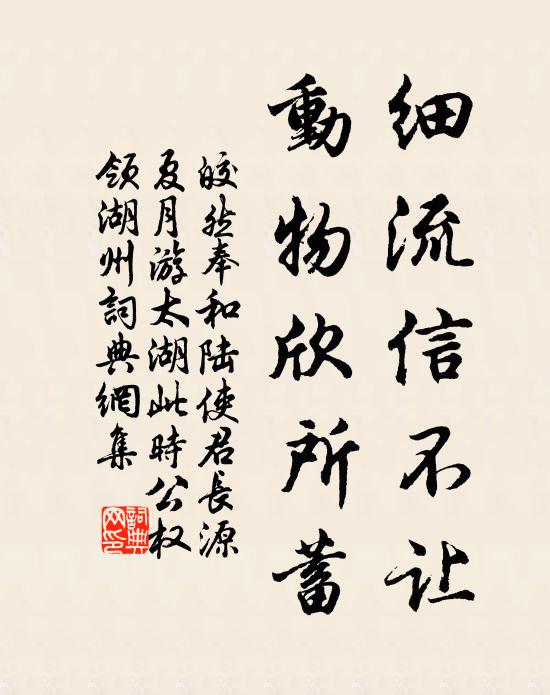 细流信不让
動物欣所蓄
皎然奉和陆使君長源
夏月游太湖此時公权
领湖州詞典網集
詞典
网印